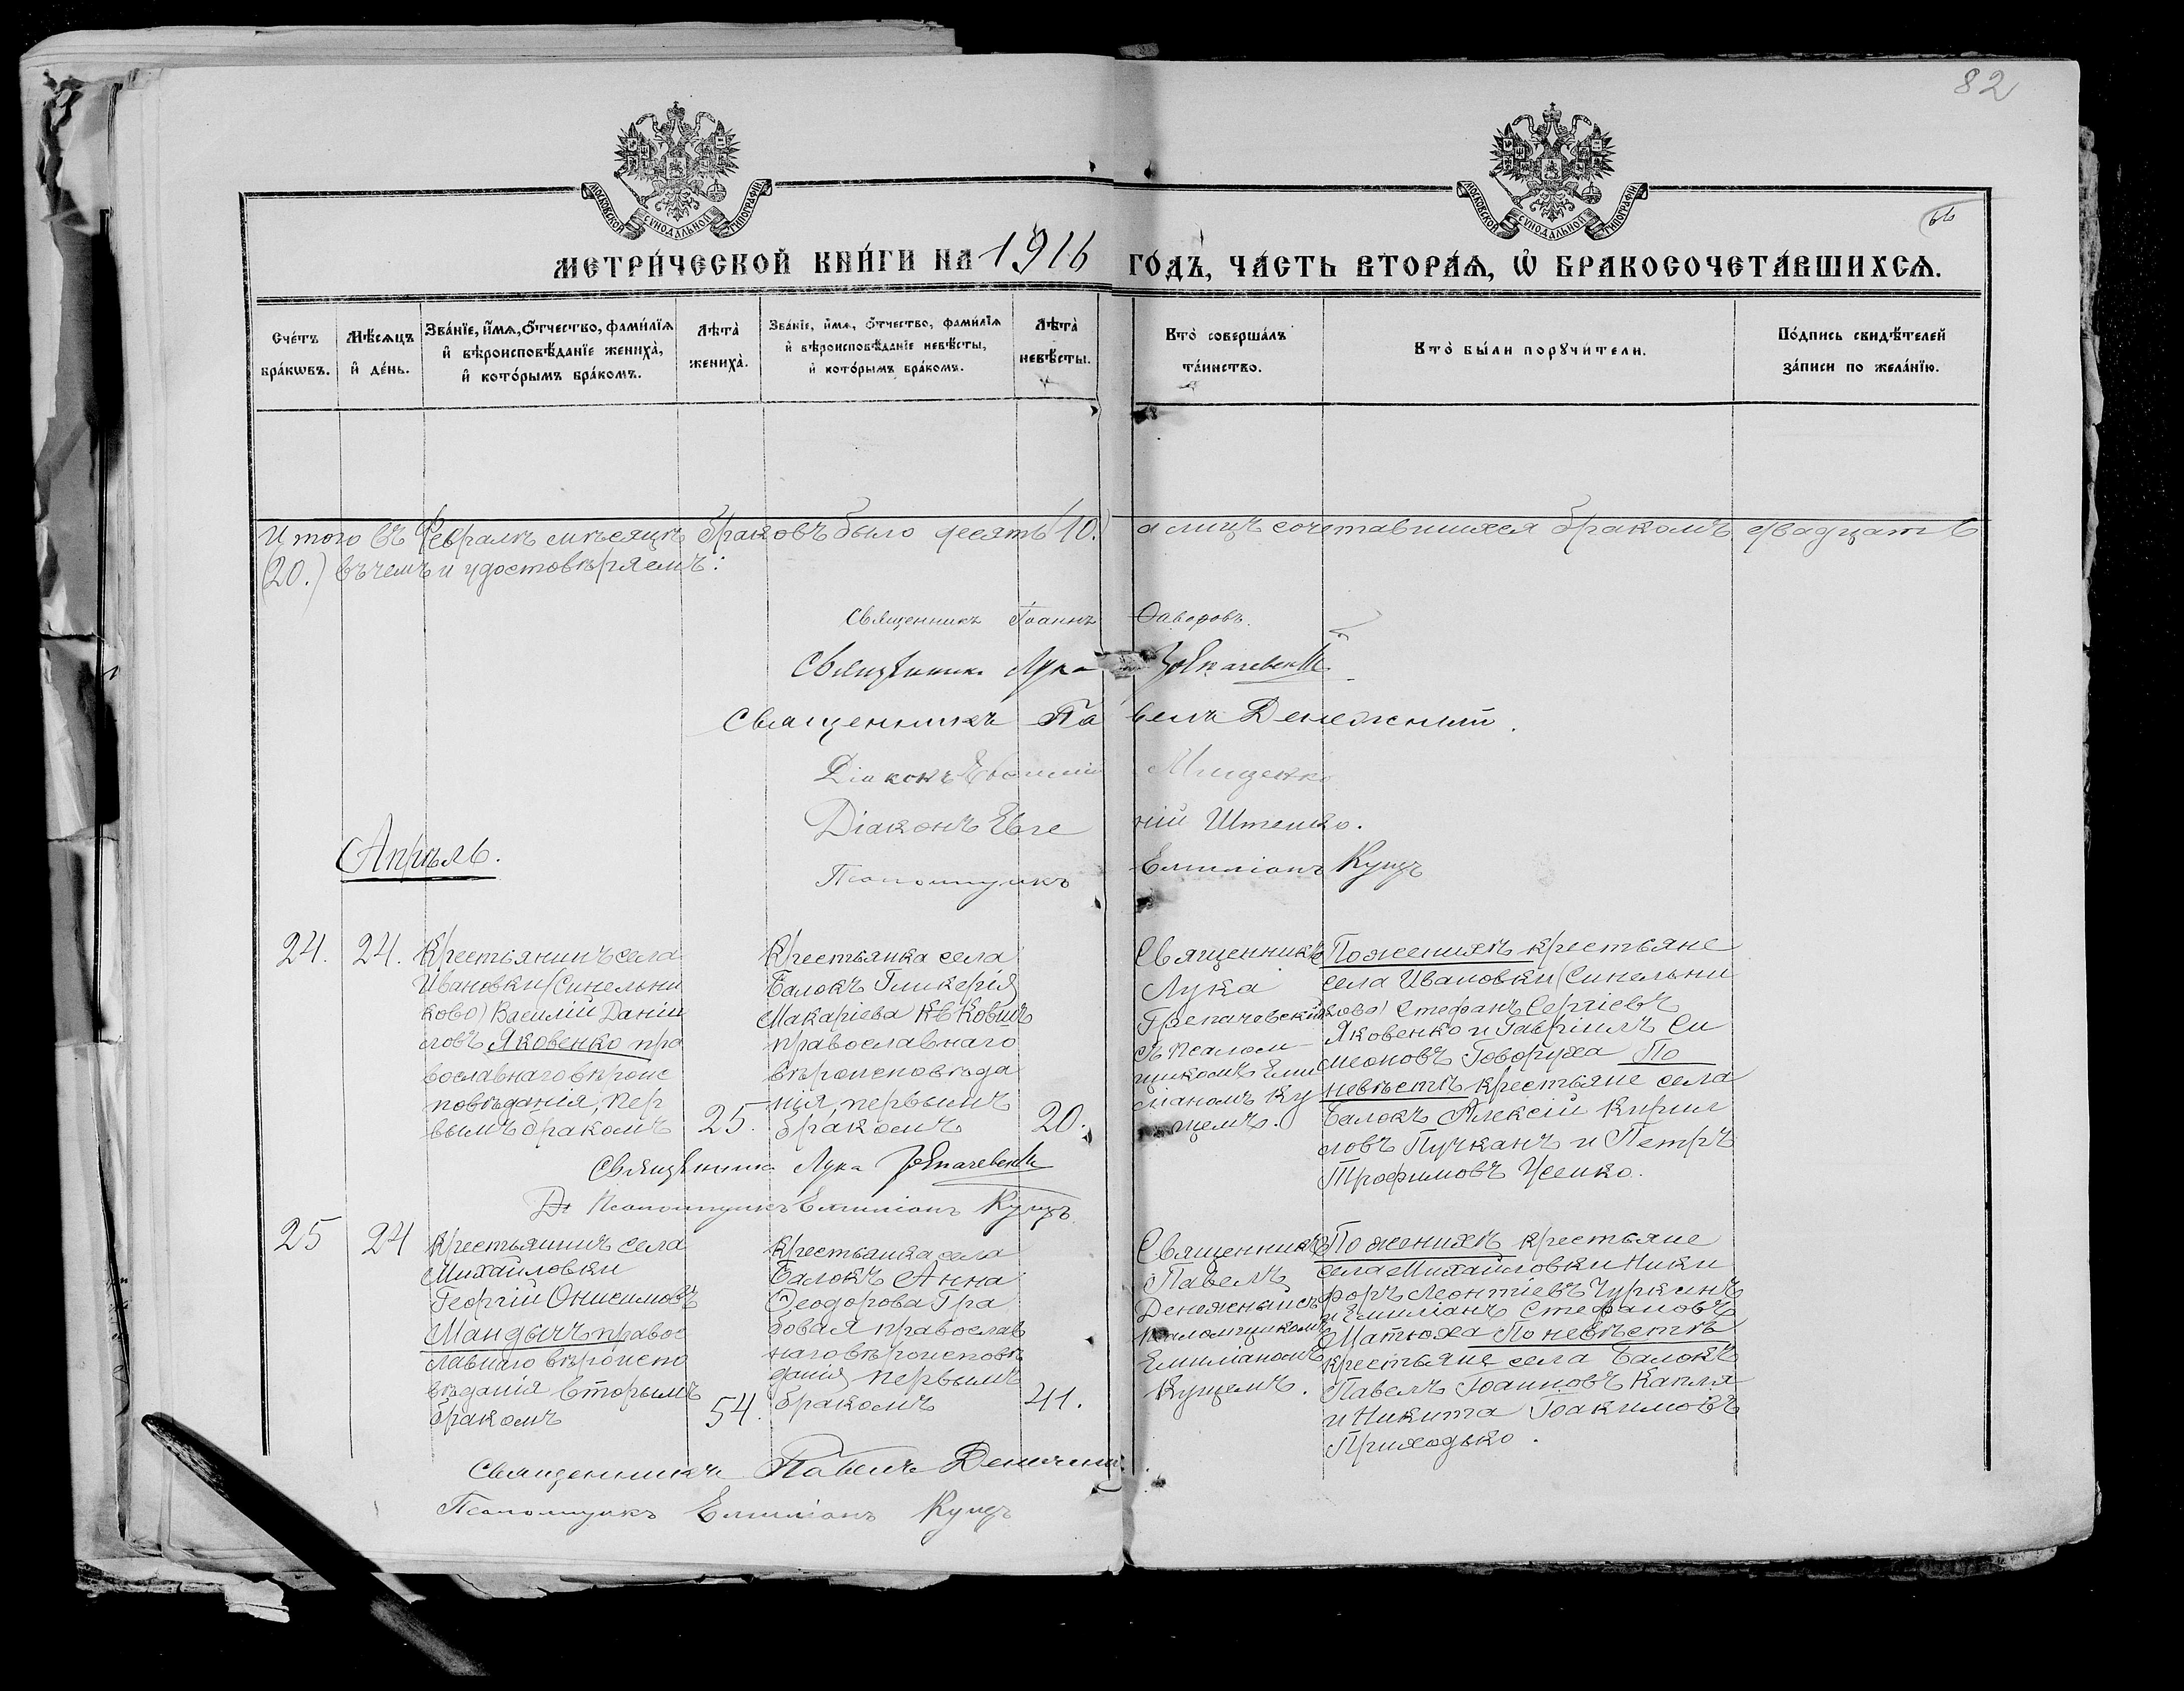 82
МОСКОВСКОЙ СѴНОДАЛЬНОЙ ТИПОГРАФІИ
МОСКОВСКОЙ СѴНОДАЛЬНОЙ ТИПОГРАФІИ
МЕТРИ́ЧЕСКОЙ КНИ́ГИ НА 1916 ГО́ДЪ, ЧА́СТЬ ВТОРА́Ѧ, Ѡ҆ БРАКОСОЧЕТА́ВШИХСѦ.
Сче́тъ бра́кѡвъ.
Мѣ́сѧцъ и҆ де́нь.
Зва́нїе, и҆́мѧ, ѻ҆́тчество, фами́лїѧ и҆ вѣроисповѣ́данїе жениха̀, и҆ кото́рымъ бра́комъ.
Лѣта̀ жениха̀.
Зва́нїе, и҆́мѧ, ѻ҆́тчество, фами́лїѧ и҆ вѣроисповѣ́данїе невѣ́сты, и҆ кото́рымъ бра́комъ.
Лѣта̀ невѣ́сты.
Кто̀ соверша́лъ та́инство.
Кто̀ бы́ли порꙋчи́тели.
По́дпись свидѣ́телей за́писи по жела́нїю.
Итого въ Февралѣ мѣсяцѣ браковъ было десять (10.) а лицъ сочетавшихся бракомъ двадцать
(20.) въ чемъ и удостовѣряемъ:
Священникъ Іоаннъ Ѳаворовъ.
Священникъ Лука
Священникъ Павелъ Денежный.
Діаконъ Мищенко
Діаконъ Евгеній Штенко.
Псаломщикъ Емиліанъ Кущъ
Апрѣль.
24.
24.
Крестьянинъ села
Ивановки (Синельни
ково) Василій Даніи
ловъ Яковенко пра
вославнаго вѣроис
повѣданія, пер
вымъ бракомъ
25.
Крестьянка села
Балокъ Гликерія
Макаріева Ковшъ
православнаго
вѣроисповѣда
нія, первымъ
бракомъ
20.
Священникъ
Лука
съ псалом
щикомъ Еми
ліаномъ Ку
щемъ.
По женихѣ крестьяне
села Ивановки (Синельни
ково) Стефанъ Сергіевъ
Яковенко и Гавріилъ Си
меоновъ Говоруха По
невѣстѣ крестьяне села
Балокъ Алексій Кирил
ловъ Пучканъ и Петръ
Трофимовъ Усенко.
Священникъ Лука
Псаломщикъ Емиліанъ Кущъ
25
24
Крестьянинъ села
Михайловки
Георгій Онисимовъ
Мандычъ правос
лавнаго вѣроиспо
вѣданія вторымъ
бракомъ
54.
Крестьянка села
Балокъ Анна
Ѳеодорова Гра
бовая православ
наго вѣроисповѣ
данія первымъ
бракомъ
41.
Священникъ
Павелъ
Денежный съ
псаломщикомъ
Емиліаномъ
Кущемъ.
По женихѣ крестьяне
села Михайловки Ники
форъ Леонтіевъ Чуркинъ
и Емиліанъ Стефановъ
Матюха По невѣстѣ
крестьяне села Балокъ
Павелъ Іоанновъ Капля
и Никита Іоакимовъ
Приходько.
Священникъ Павелъ Денежный
Псаломщикъ Емиліанъ Кущъ